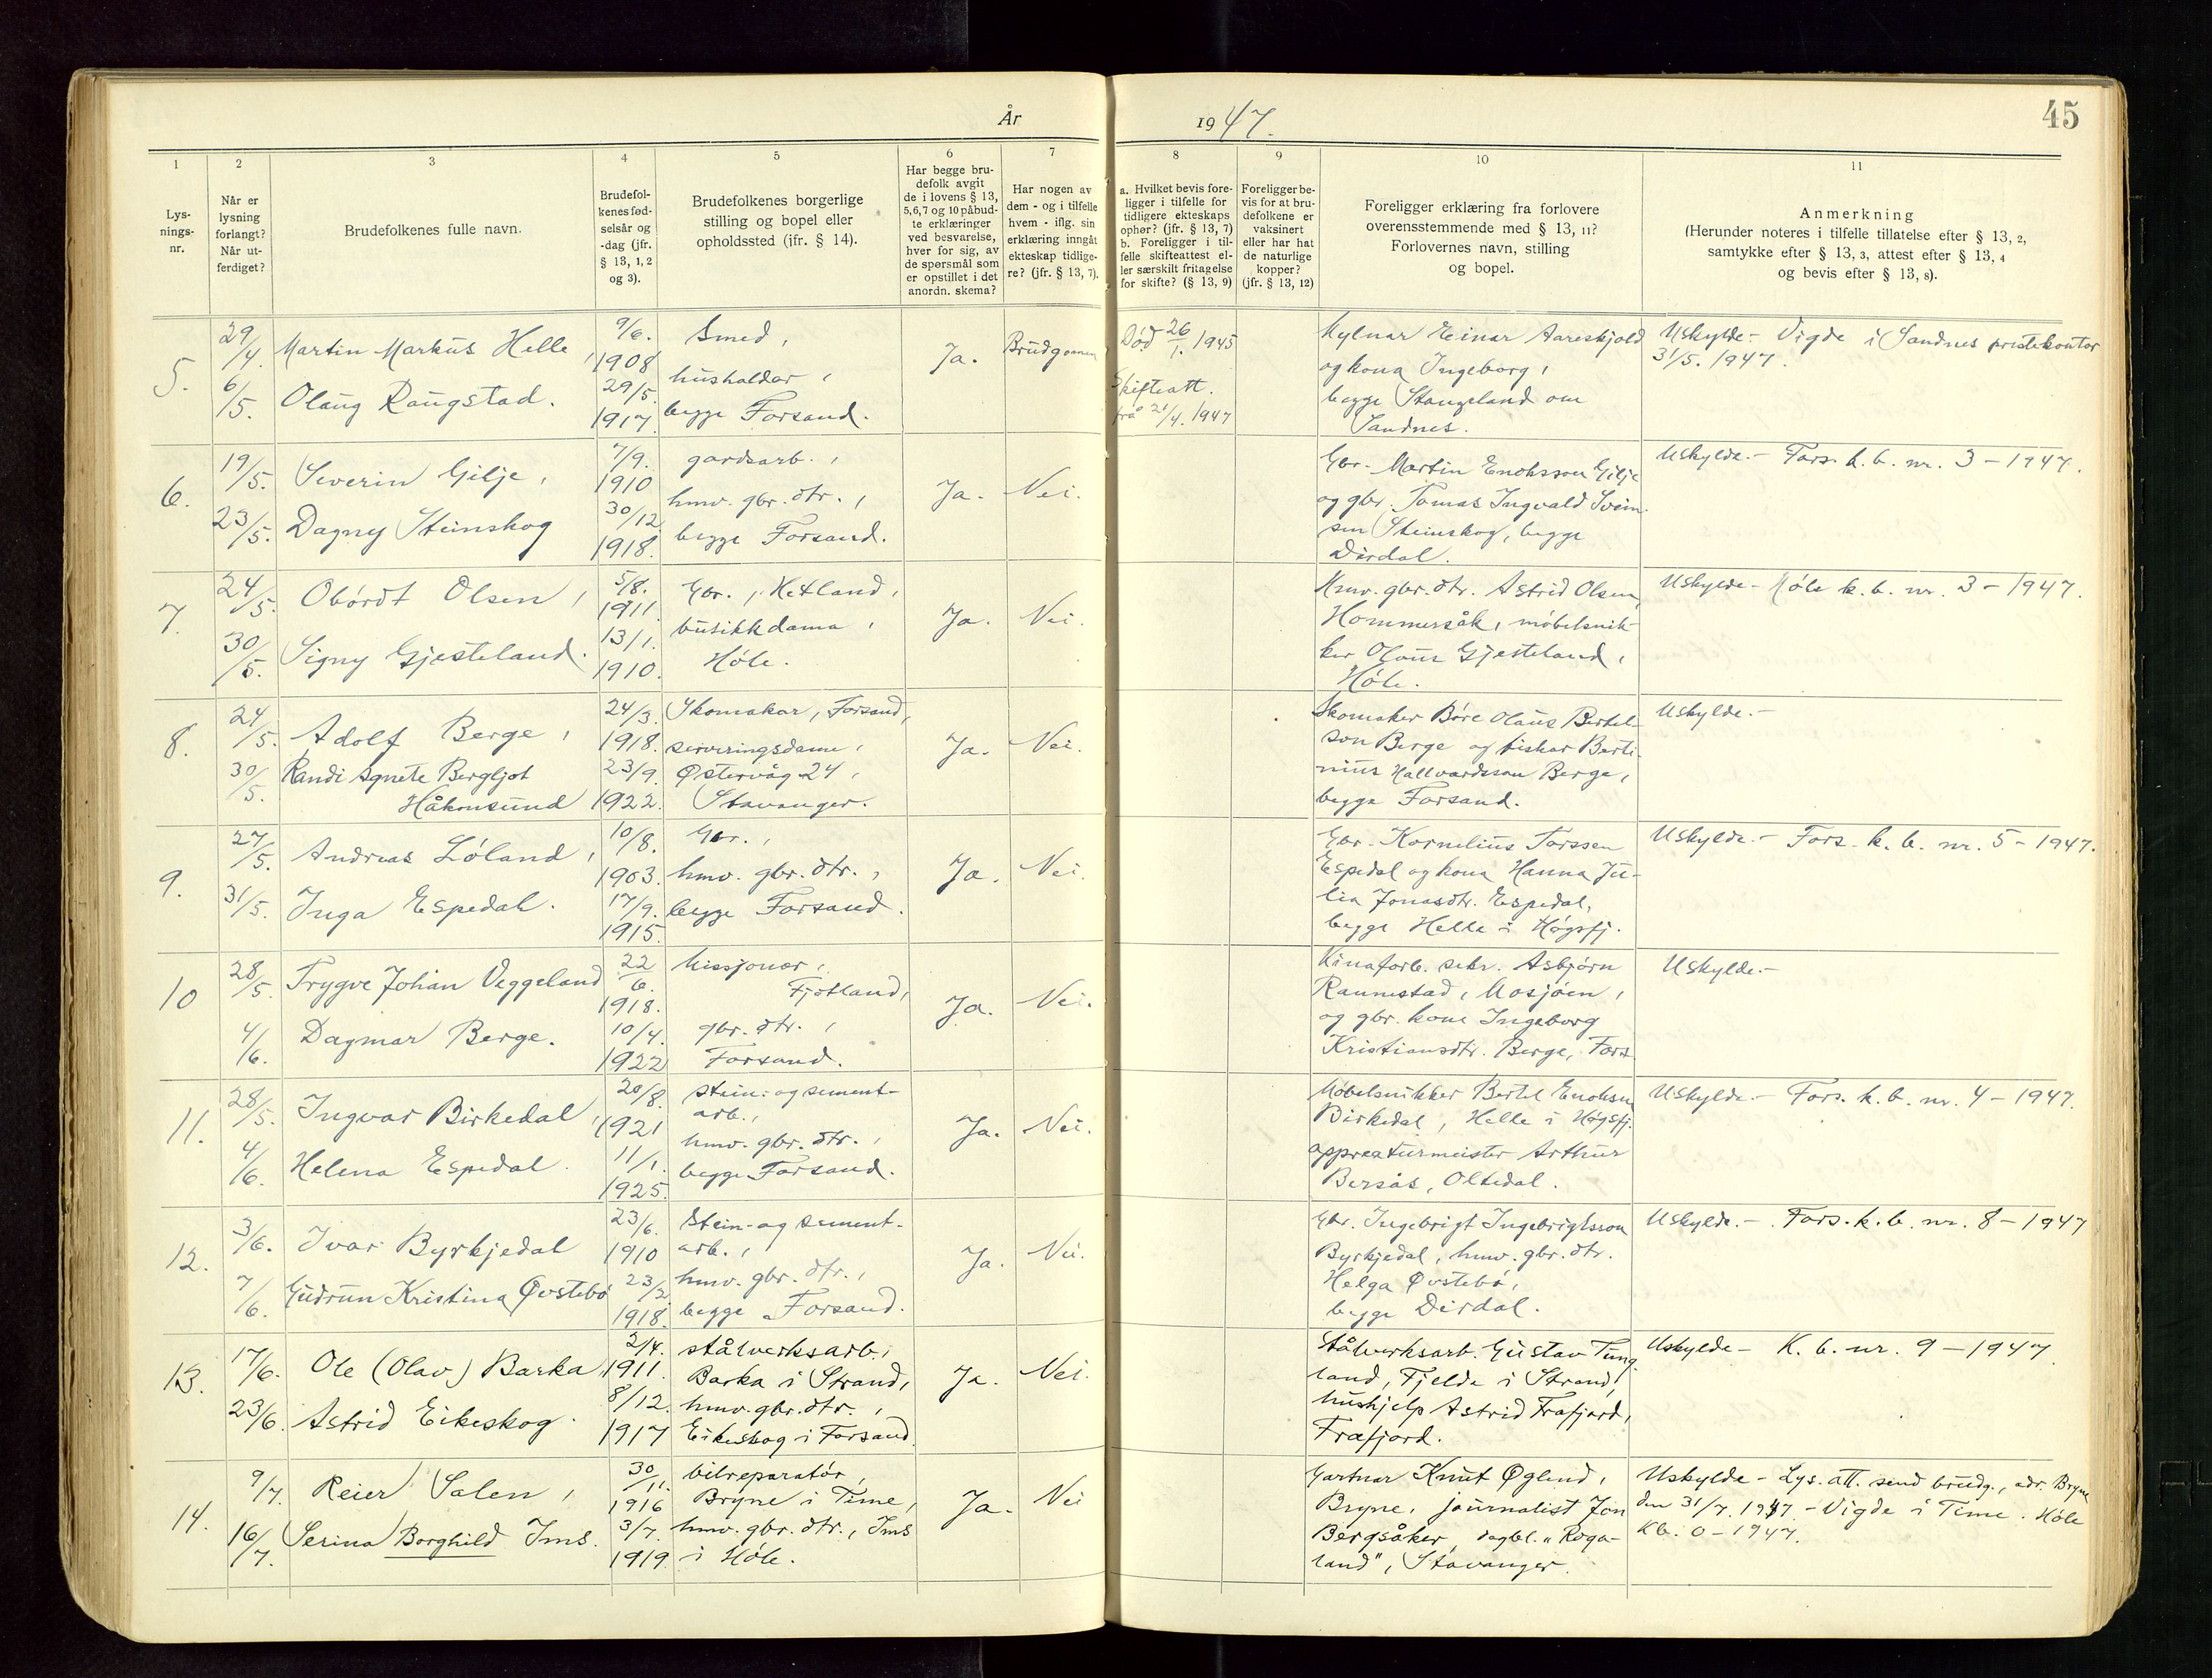 År
1947.
45
1
2
3
4
5
6
7
8
9
10
11
Lys-
nings-
nr.
Når er
lysning
forlangt?
Når ut-
ferdiget?
Brudefolkenes fulle navn.
Brudefol-
kenes fød-
selsår og
-dag (jfr.
§ 13, 1, 2
og 3).
Brudefolkenes borgerlige
stilling og bopel eller
opholdssted (jfr. § 14).
Har begge bru-
defolk avgit
de i lovens § 13,
5, 6, 7 og 10 påbud-
te erklæringer
ved besvarelse,
hver for sig, av
de spørsmål som
er opstillet i det
anordn. skema?
Har nogen av
dem - og i tilfelle
hvem - iflg. sin
erklæring inngåt
ekteskap tidlige-
re? (jfr. § 13, 7).
a. Hvilket bevis fore-
ligger i tilfelle for
tidligere ekteskaps
ophør? (jfr. § 13, 7)
b. Foreligger i til-
felle skifteattest el-
ler særskilt fritagelse
for skifte? (§ 13, 9)
Foreligger be-
vis for at bru-
defolkene er
vaksinert
eller har hat
de naturlige
kopper?
(jfr. § 13, 12)
Foreligger erklæring fra forlovere
overensstemmende med § 13, 11?
Forlovernes navn, stilling
og bopel.
Anmerkning
(Herunder noteres i tilfelle tillatelse efter § 13, 2,
samtykke efter § 13, 3, attest efter § 13, 4
og bevis efter § 13, 8).
5.
29/4.
6/5.
Martin Markus Helle,
Olaug Raugstad.
9/6.
1908
29/5.
1917.
Smed,
hushaldar,
begge Forsand.
Ja.
Brudgomen
Død 26/1. 1945
Skifteatt.
frå 21/4. 1947
Hylnar Einar Aareskjold
og kona Ingeborg,
begge Stangeland om
Sandnes.
Uskylde.- Vigde i Sandnes prestekontor
31/5. 1947.
6.
19/5.
23/5.
Severin Gilje,
Dagny Steinskog
7/9.
1910
30/12
1918.
gardsarb.,
hmv. gbr. dtr.,
begge Forsand.
Ja.
Nei.
Gbr. Martin Enoksson Gilje
og gbr. Tomas Ingvald Svein-
sen Steinskog, begge
Dirdal.
Uskylde.- Fors. k. b. nr. 3 - 1947.
7.
24/5.
30/5.
Obórdt Olsen,
Signy Gjesteland.
5/8.
1911.
13/1.
1910.
Gbr., Hetland,
butikkdama,
Høle.
Ja.
Nei.
Hmv. gbr. dtr. Astrid Olsen,
Hommersåk, møbelsnik-
ker Olaus Gjesteland,
Høle.
Uskylde - Høle k. b. nr. 3 - 1947.
8.
24/5.
30/5.
Adolf Berge,
Randi Agnete Bergljot
Håkonsund
24/3.
1918.
23/9.
1922.
Skomakar, Forsand,
serveringsdame,
Østervåg 24,
Stavanger.
Ja.
Nei.
Skomaker Børe Olaus Bertel-
son Berge og fiskar Berti-
nius Hallvardsson Berge,
begge Forsand.
Uskylde.-
9.
27/5.
31/5.
Andreas Løland,
Inga Espedal.
10/8.
1903.
17/9.
1915.
Gbr.,
hmv. gbr. dtr.,
begge Forsand.
Ja.
Nei.
Gbr. Kornelius Torssen
Espedal og kona Hanna Ju-
lia Jonasdtr. Espedal,
begge Helle i Høgsfj.
Uskylde.- Fors. k. b. nr. 5 - 1947.
10
28/5.
4/6.
Trygve Johan Veggeland
Dagmar Berge.
22/6.
1918.
10/4.
1922
Missjonær,
Fjotland,
gbr. dtr.,
Forsand.
Ja.
Nei.
Kinaforb. sekr. Asbjørn
Raunestad, Mosjøen,
og gbr. kone Ingeborg
Kristiansdtr. Berge, Fors.
Uskylde.-
11.
28/5.
4/6.
Ingvar Birkedal,
Helena Espedal.
20/8.
1921
11/1.
1925.
stein- og sement-
arb.,
hmv. gbr. dtr.,
begge Forsand.
Ja.
Nei.
Møbelsnikker Bertel Enoksn
Birkedal, Helle i Høgsfj.
appreaturmeister Arthur
Bersås, Oltedal.
Uskylde.- Fors. k. b. nr. 4 - 1947.
12.
3/6.
7/6.
Ivar Byrkjedal
Gudrun Kristina Øvstebø
23/6.
1910
23/2
1918.
Stein- og sement-
arb.,
hmv. gbr. dtr.,
begge Forsand.
Ja.
Nei.
Gbr. Ingebrigt Ingebrigtsson
Byrkjedal, hmv. gbr. dtr.
Helga Øvstebø,
begge Dirdal.
Uskylde.- Fors. k. b. nr. 8 - 1947
13.
17/6.
23/6.
Ole (Olav) Barka
Astrid Eikeskog.
2/4.
1911.
8/12.
1917
stålverksarb.,
Barka i Strand,
hmv. gbr. dtr.,
Eikeskog i Forsand
Ja.
Nei.
Stålverksarb. Gustav Tung-
land, Fjelde i Strand,
hushjelp Astrid Frafjord,
Frafjord.
Uskylde - K. b. nr. 9 - 1947.
14.
9/7.
16/7.
Reier Salen,
Serina Borghild Ims.
30/11.
1916
3/7.
1919.
bilreparatør,
Bryne i Time,
hmv. gbr. dtr., Ims
i Høle.
Ja.
Nei
Gartnar Knut Øglend,
Bryne, journalist Jon
Bergsåker, dagbl. "Roga-
land", Stavanger.
Uskylde - Lys. att. send brudg., adr. Bryne
den 31/7. 1947 - Vigde i Time. Høle
Kb. 0 - 1947.